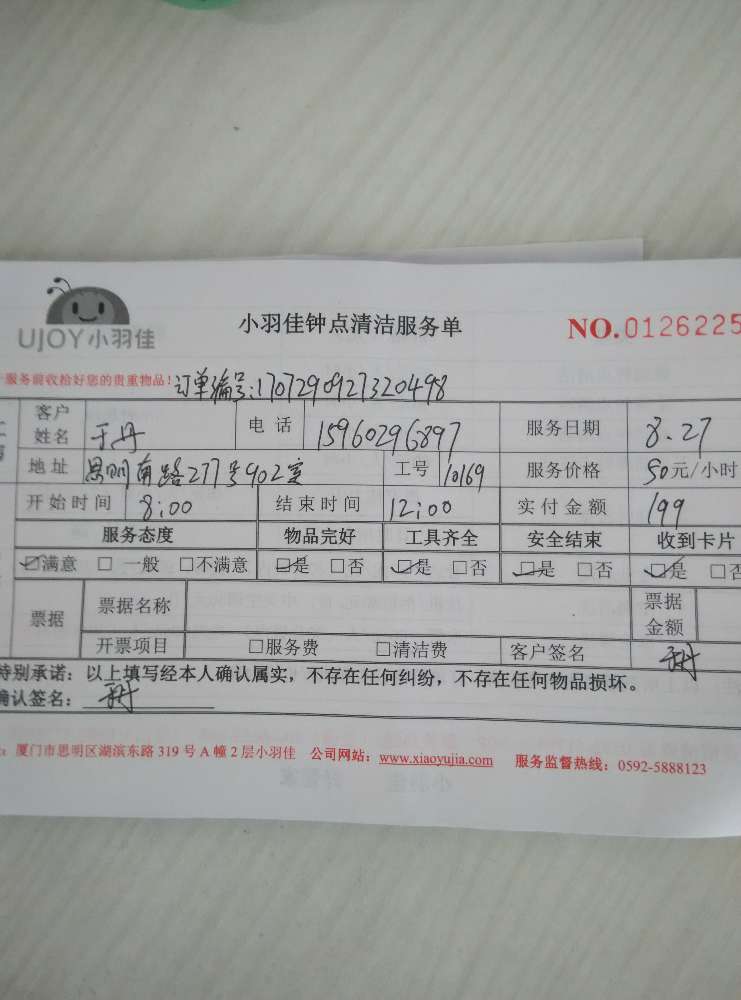 UJOY小羽佳
小羽佳钟点清洁服务单
NO.0126225
服务前收拾好您的贵重物品! 订单编号:1707290927320498
客户姓名 于丹 电话 15960296897 服务日期 8.27
地址 思明南路277号902室 工号 10169 服务价格 50元/小时
开始时间 8:00 结束时间 12:00 实付金额 199
服务态度 物品完好 工具齐全 安全结束 收到卡片
☑满意 □一般 □不满意 ☑是 □否 ☑是 □否 ☑是 □否 ☑是 □否
票据 票据名称 票据金额
开票项目 □服务费 □清洁费 客户签名 于丹
特别承诺:以上填写经本人确认属实,不存在任何纠纷,不存在任何物品损坏。
确认签名: 于丹
厦门市思明区湖滨东路319号A幢2层小羽佳 公司网站:www.xiaoyujia.com 服务监督热线:0592-5888123